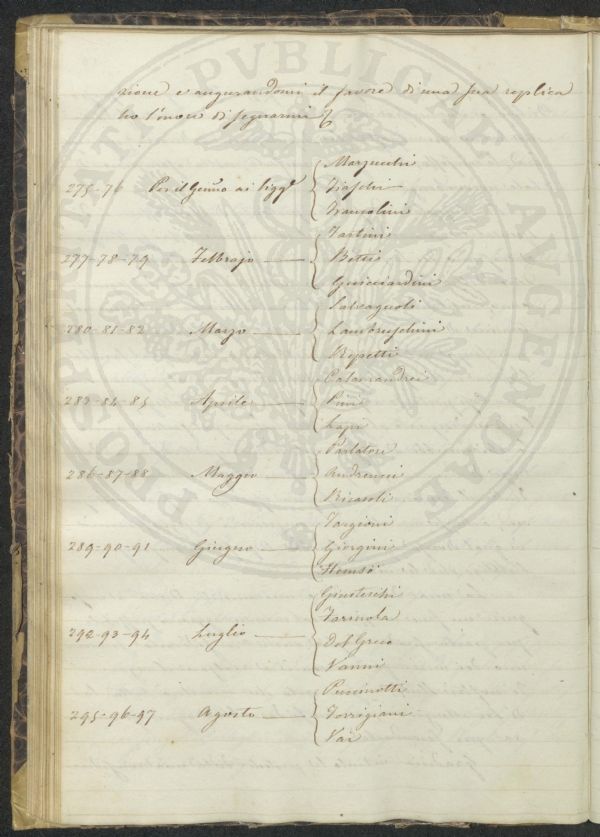 zione e augurandomi il favore di una sua replica
ho l'onore di segnarmi
275-76 Per il Genno ai Sigg.i
Marzucchi
Fraschi
Franzolini
277-78-79 Febbrajo
Tartini
Betti
Guicciardini
280-81-82 Marzo
Salvagnoli
Lambruschini
Repetti
283-84-85 Aprile
Calamandrei
Pini
Lapi
286-87-88 Maggio
Parlatore
Andreucci
Ricasoli
289-90-91 Giugno
Targioni
Giorgini
292-93-94 Luglio
Farinola
Del Greco
Vanni
295-96-97 Agosto
Puccinotti
Torrigiani
Vai
PROSPERITATI PVBLICAE AVGENDAE